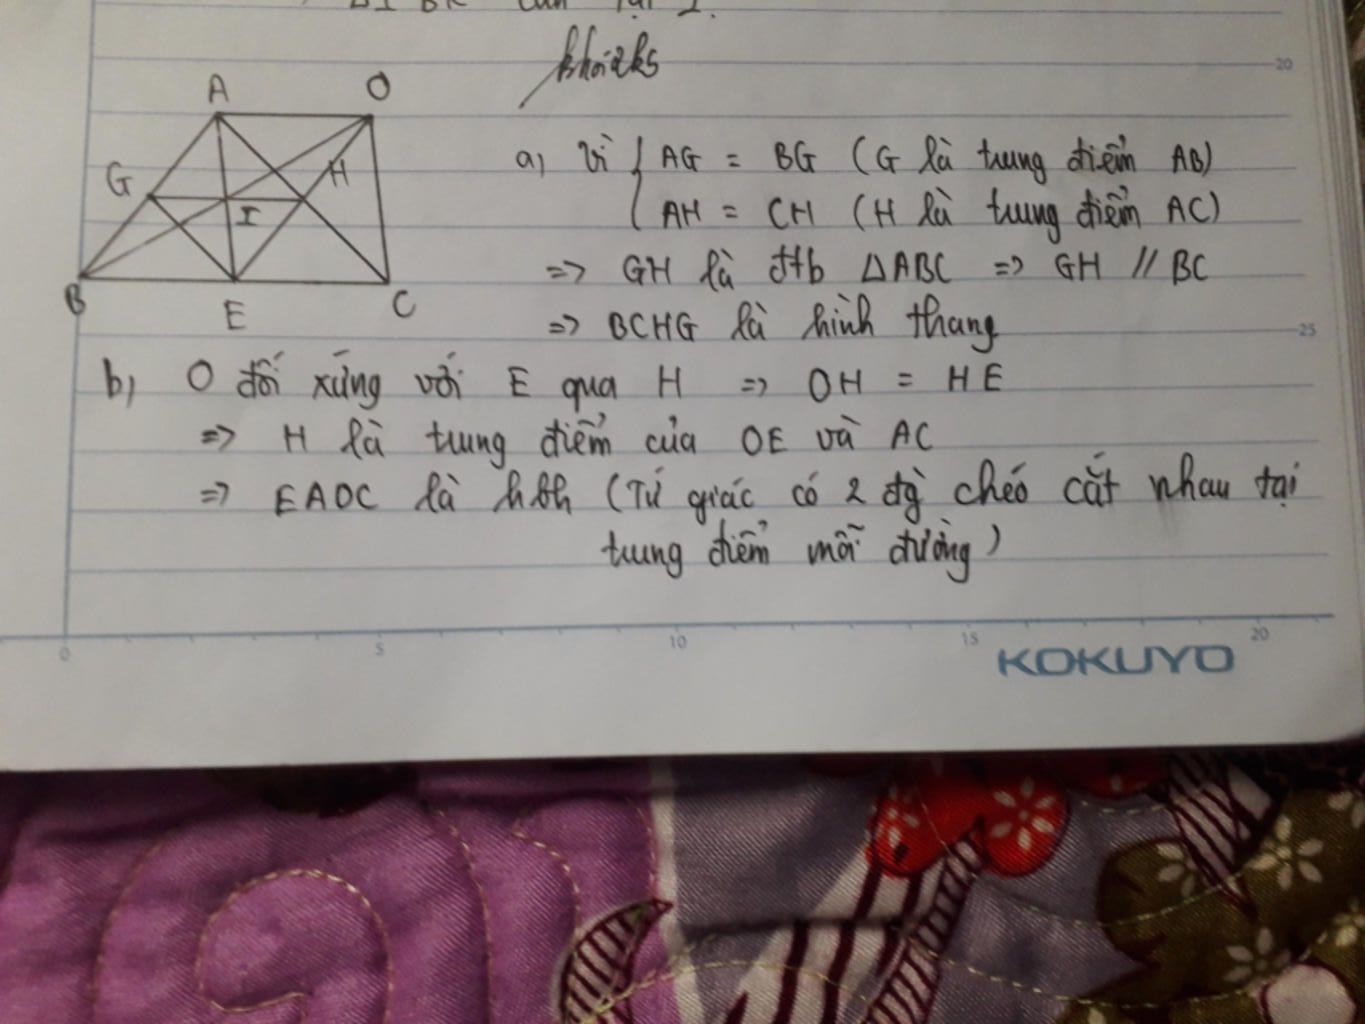 khoi2k5
20
A O
G H
I
B E C
a, Vì { AG = BG (G là trung điểm AB)
AH = CH (H là trung điểm AC)
=> GH là đtb ΔABC => GH // BC
=> BCHG là hình thang
25
b, O đối xứng với E qua H => OH = HE
=> H là trung điểm của OE và AC
=> EAOC là hbh (Tứ giác có 2 đg chéo cắt nhau tại
trung điểm mỗi đường)
0 5 10 15 20
KOKUYO